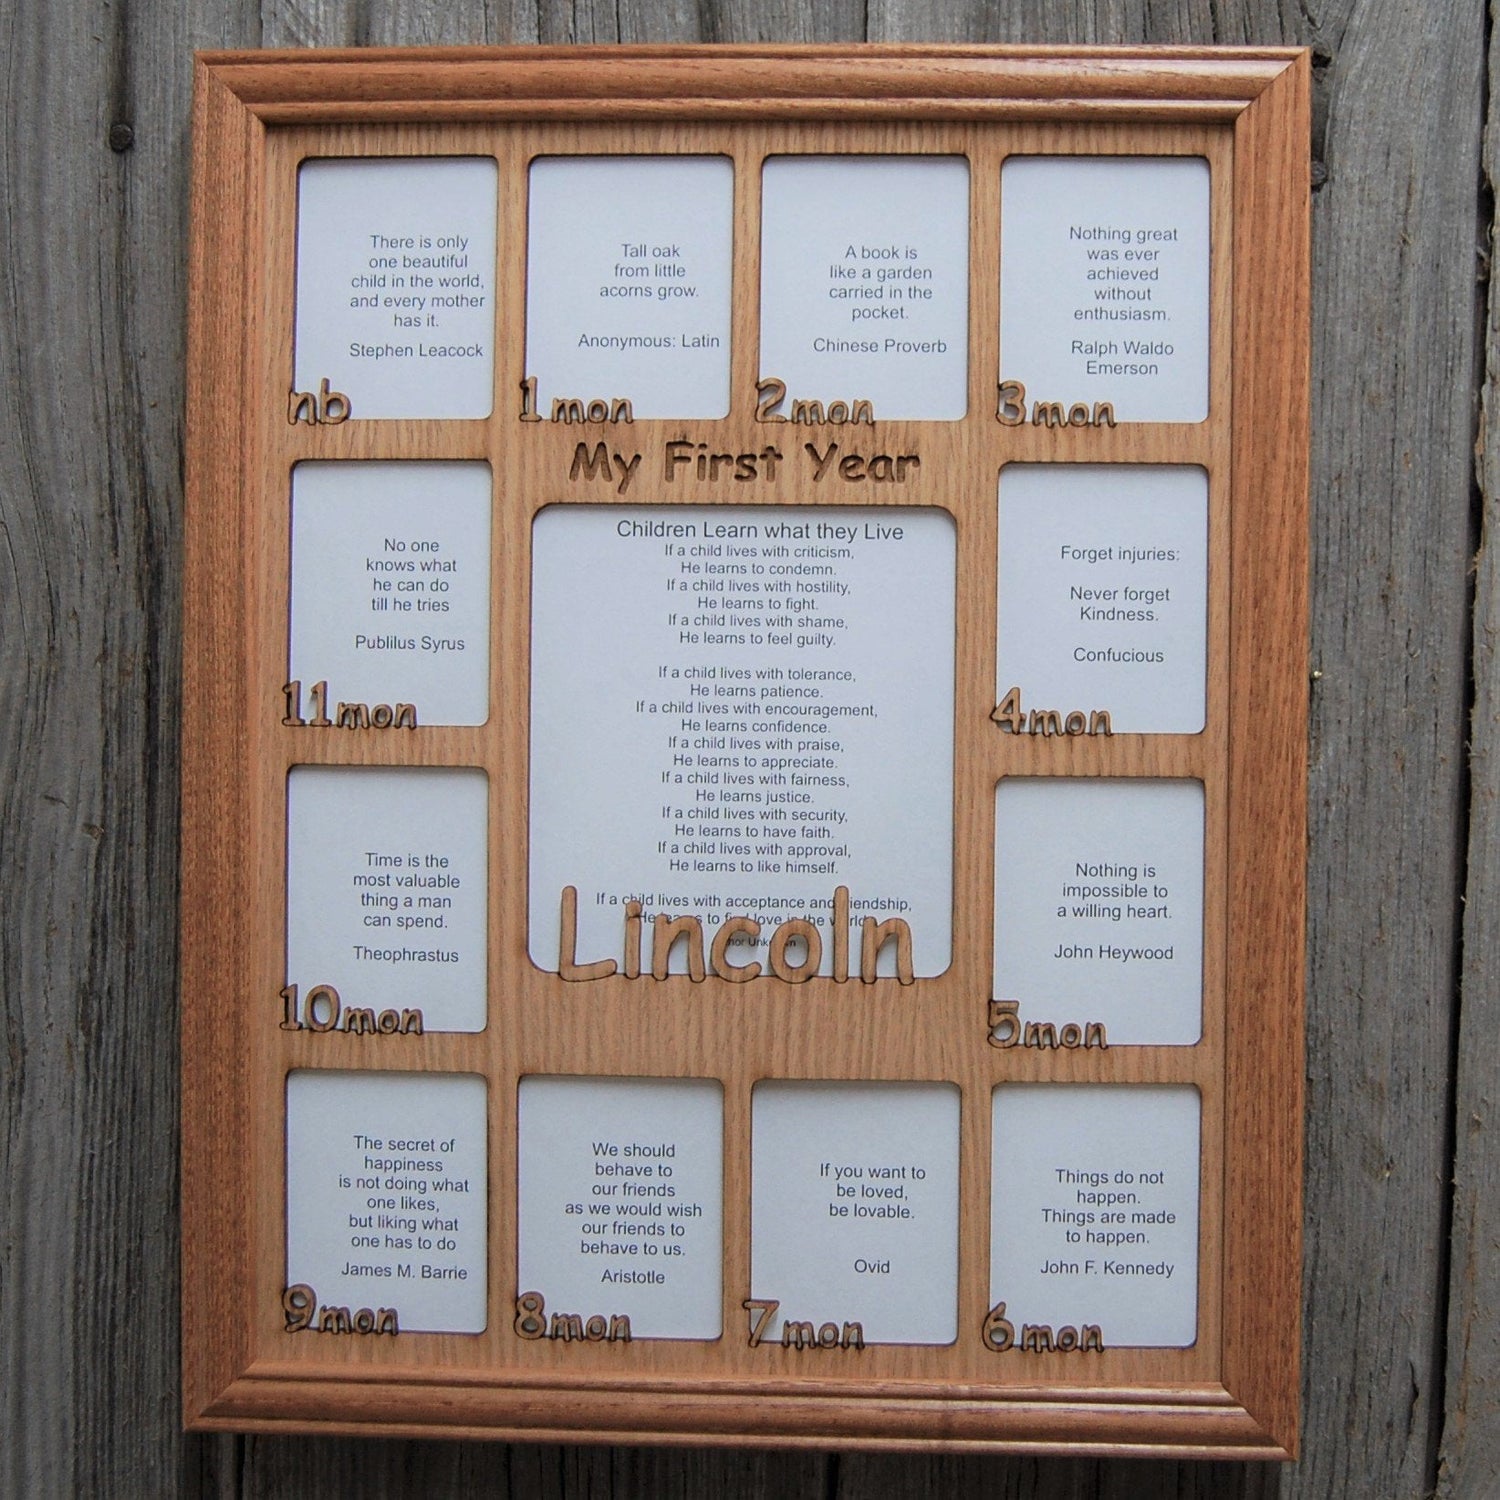 There is only
one beautiful
child in the world,
and every mother
has it.
Stephen Leacock
nb
Tall oak
from little
acorns grow.
Anonymous: Latin
1mon
A book is
like a garden
carried in the
pocket.
Chinese Proverb
2mon
Nothing great
was ever
achieved
without
enthusiasm.
Ralph Waldo
Emerson
3mon
My First Year
No one
knows what
he can do
till he tries
Publilus Syrus
11mon
Children Learn what they Live
If a child lives with criticism,
He learns to condemn.
If a child lives with hostility,
He learns to fight.
If a child lives with shame,
He learns to feel guilty.
If a child lives with tolerance,
He learns patience.
If a child lives with encouragement,
He learns confidence.
If a child lives with praise,
He learns to appreciate.
If a child lives with fairness,
He learns justice.
If a child lives with security,
He learns to have faith.
If a child lives with approval,
He learns to like himself.
If a child lives with acceptance and
He to love in the
Lincoln
Forget injuries:
Never forget
Kindness.
Confucious
4mon
Time is the
most valuable
thing a man
can spend.
Theophrastus
10mon
Nothing is
impossible to
a willing heart.
John Heywood
5mon
The secret of
happiness
is not doing what
one likes,
but liking what
one has to do
James M. Barrie
9mon
We should
behave to
our friends
as we would wish
our friends to
behave to us.
Aristotle
8mon
If you want to
be loved,
be lovable.
Ovid
7mon
Things do not
happen.
Things are made
to happen.
John F. Kennedy
6mon